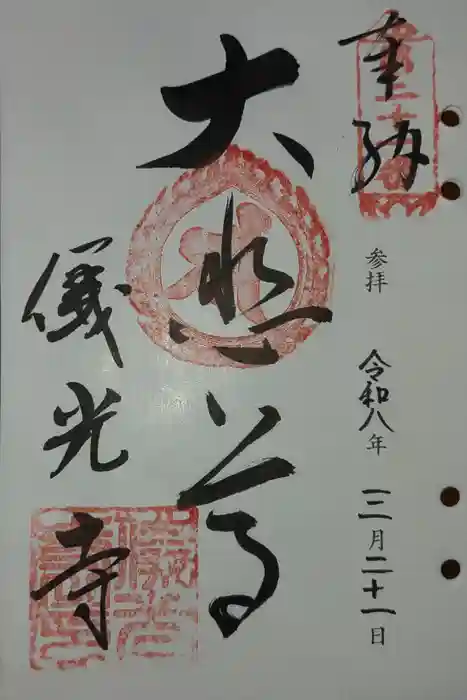 奉納
参拝 令和八年三月二十一日
大悲尊
儀光寺